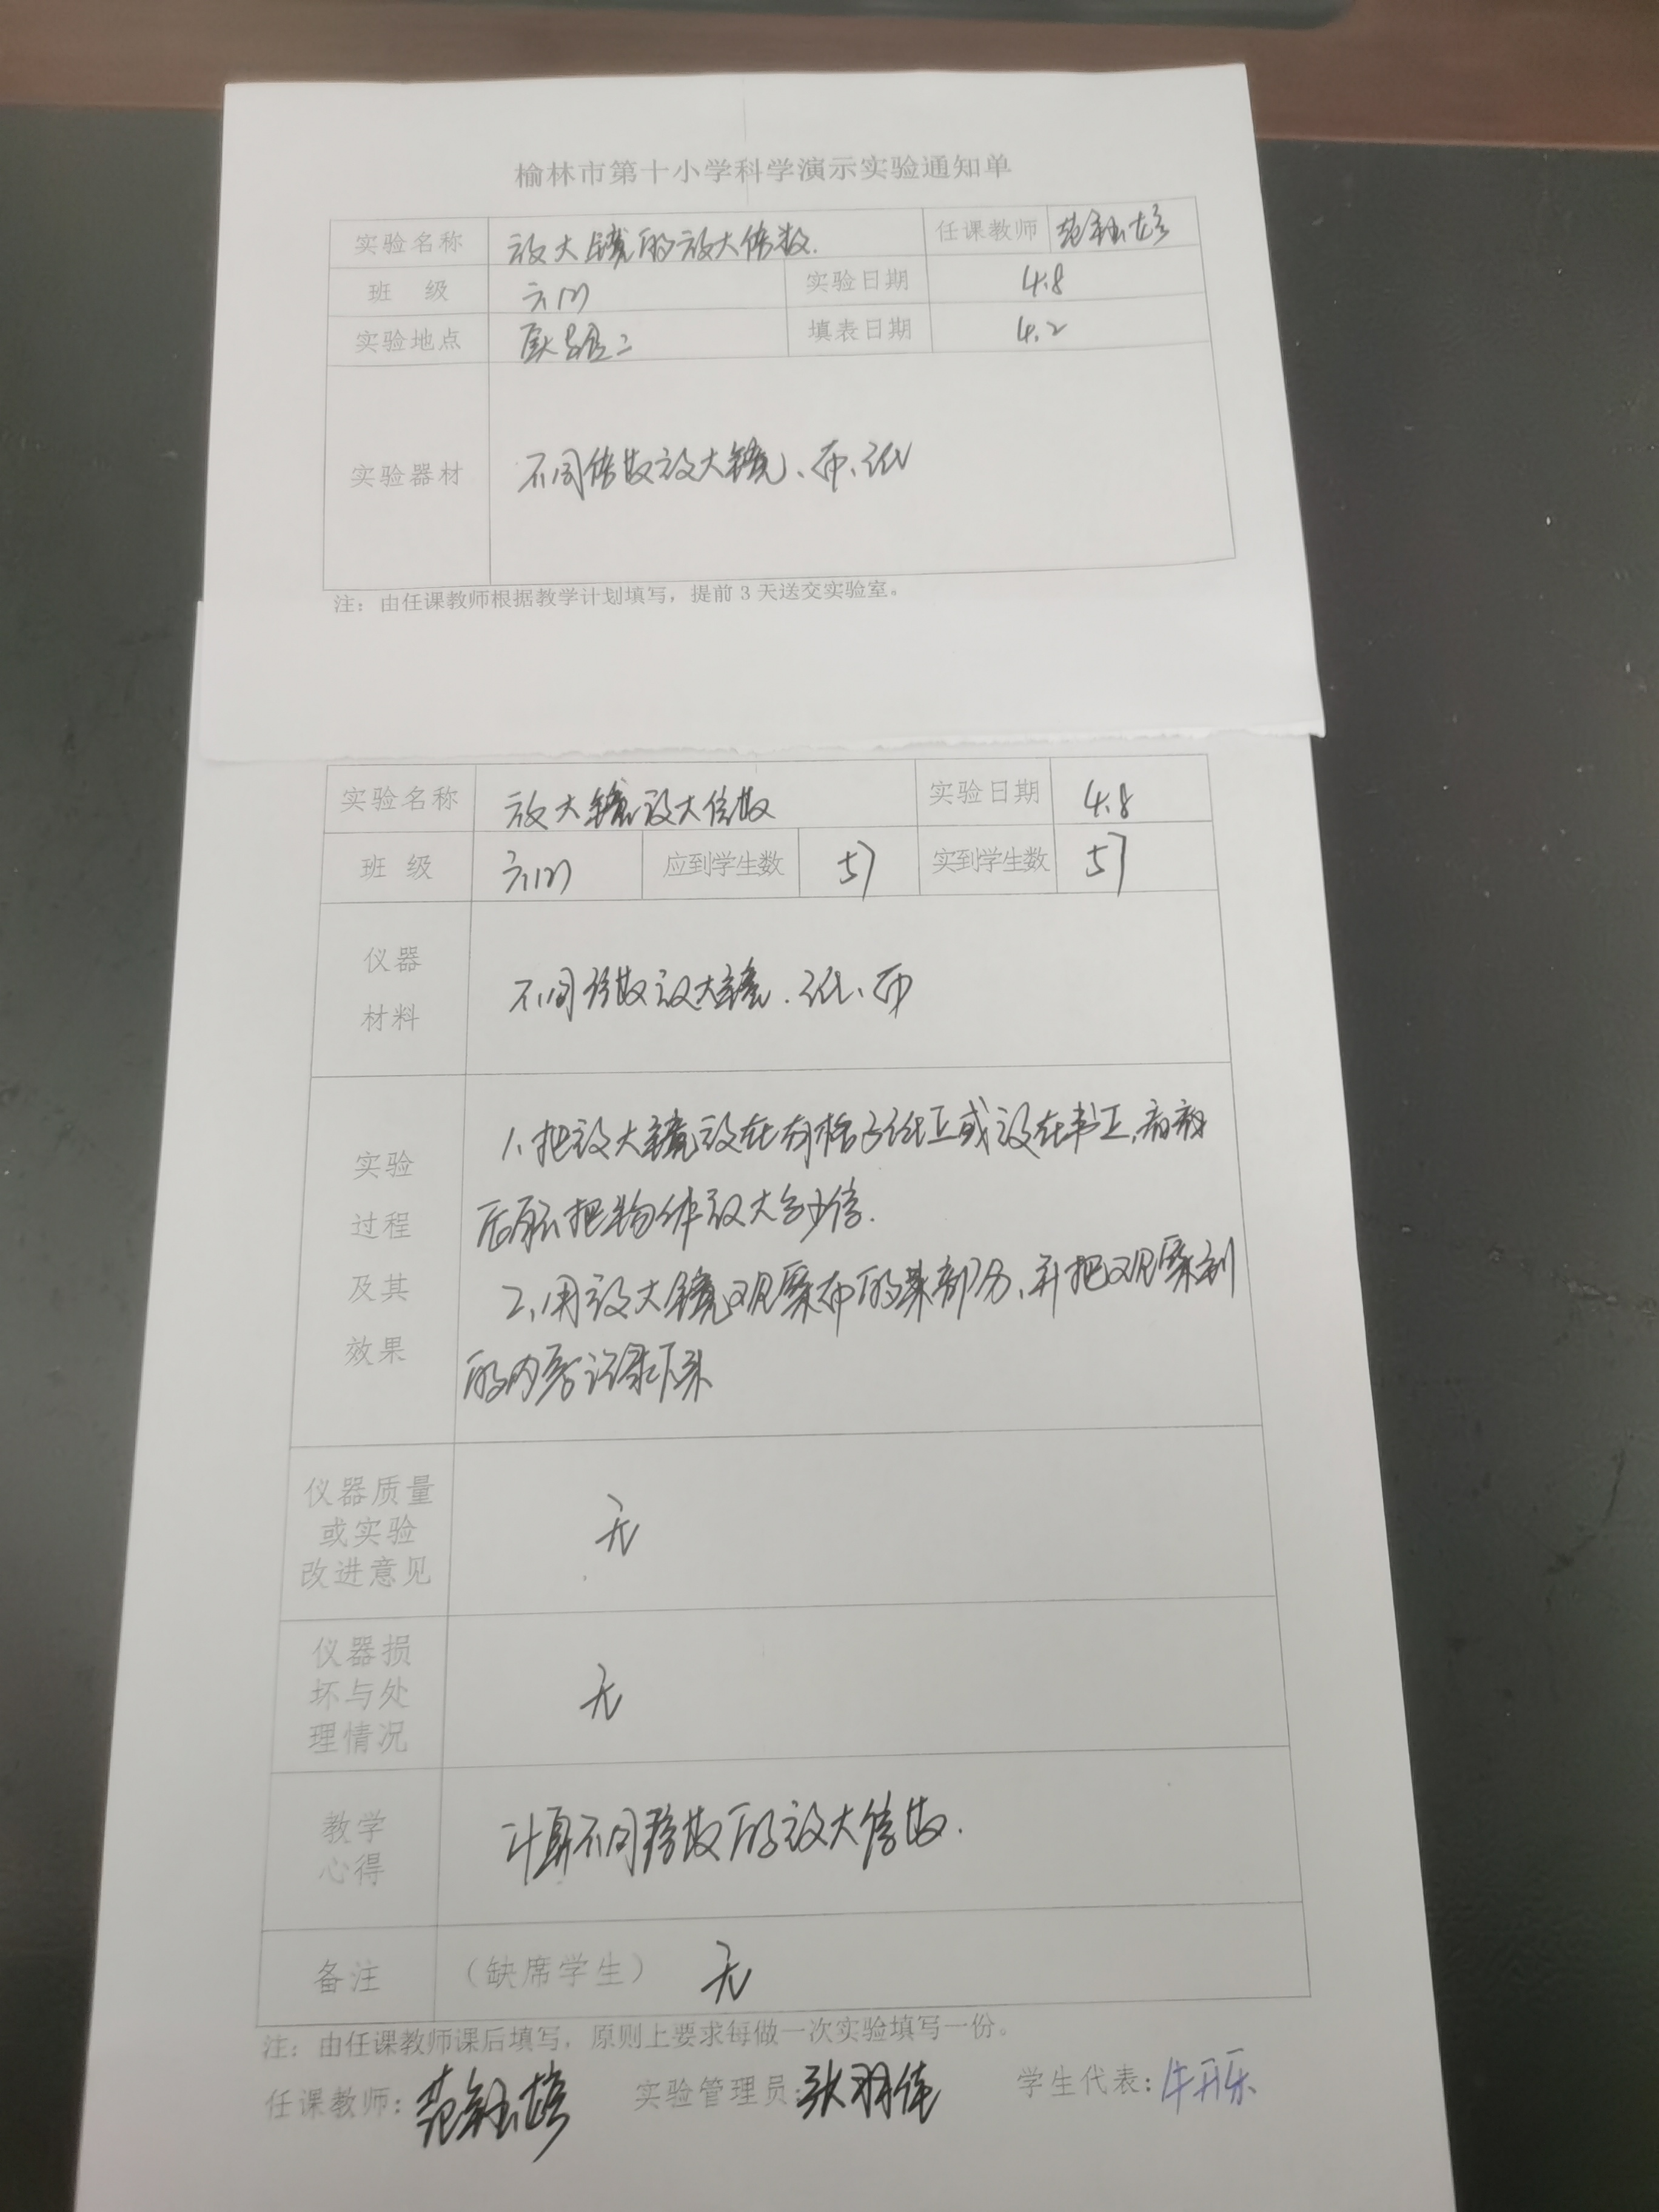 榆林市第十小学科学演示实验通知单
实验名称 放大镜的放大倍数. 任课教师
班 级 实验日期 4.8
实验地点 填表日期 4.2
实验器材 不同倍数放大镜、布、纸
注：由任课教师根据教学计划填写，提前3天送交实验室。
实验名称 放大镜放大倍数 实验日期 4.8
班 级 应到学生数 57 实到学生数 57
仪器
材料
不同倍数放大镜.纸、布
实验
过程
及其
效果
1、把放大镜放在有格子纸上或放在书上,
把物体放大多少倍.
2、用放大镜观察布的某部分、并把观察到
的内容记录下来
仪器质量
或实验
改进意见
无
仪器损
坏与处
理情况
无
教学
心得
计算不同倍数的放大倍数.
备注 （缺席学生） 无
注：由任课教师课后填写，原则上要求每做一次实验填写一份。
任课教师： 实验管理员：张羽佳 学生代表：